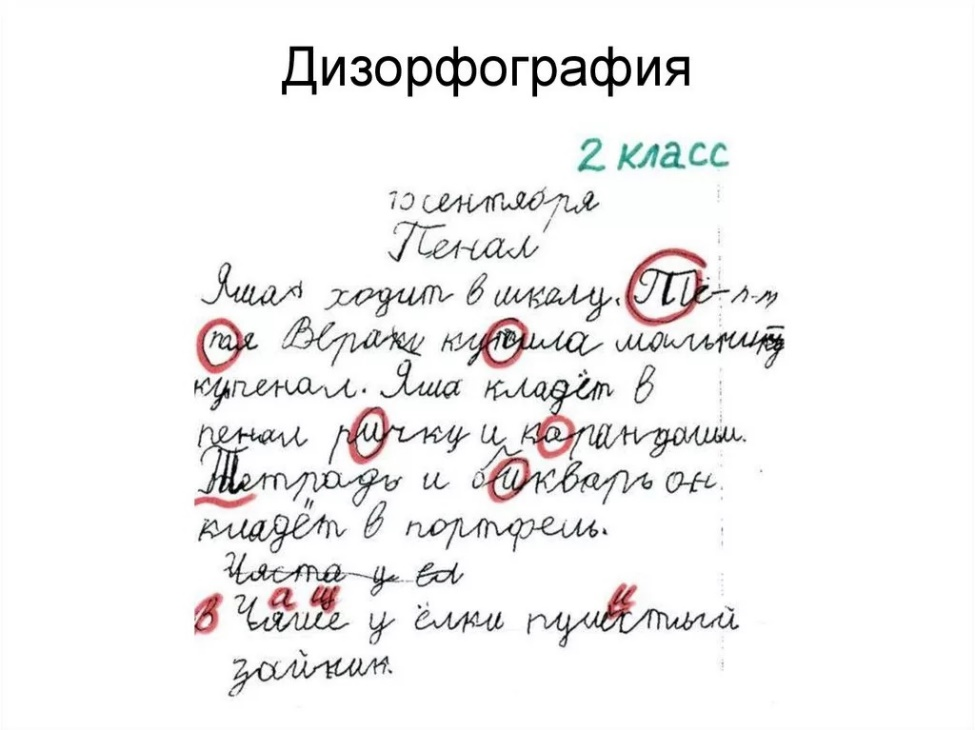 Дизорфография
2 класс
10 сентября
Пенал
Яша ходит в школу. Тё-
пая купила мальчи
ку пенал. Яша кладёт в
пенал ричку и карандаши.
Тетрадь и бйкварь он
кладёт в портфель.
Чяста у
а щ и
в Чяше у ёлки пушстый
зайчик.